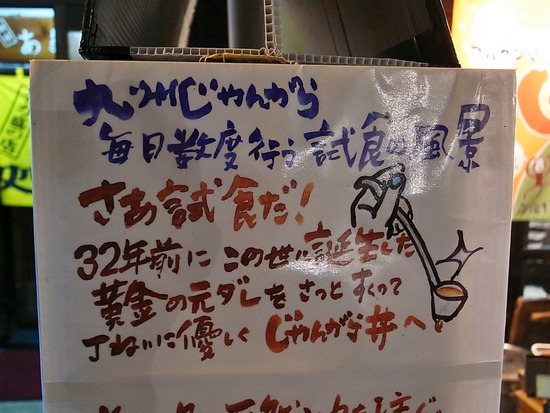 九州じゃんがら
毎日数度行う試食の風景
さあ試食だ!
32年前にこの世に誕生した
黄金の元ダレをさっとすくって
丁ねいに優しくじゃんがら丼へ